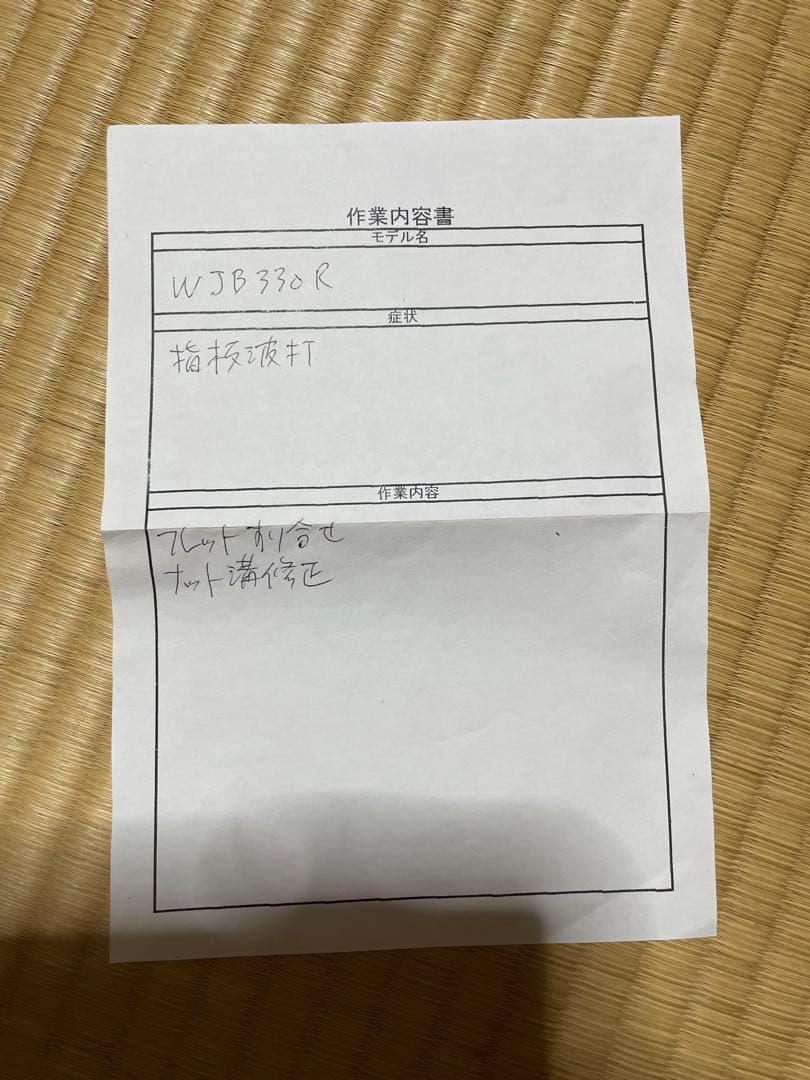 作業内容書
モデル名
WJB330R
症状
指板波打
作業内容
フレットすり合せ
ナット溝修正